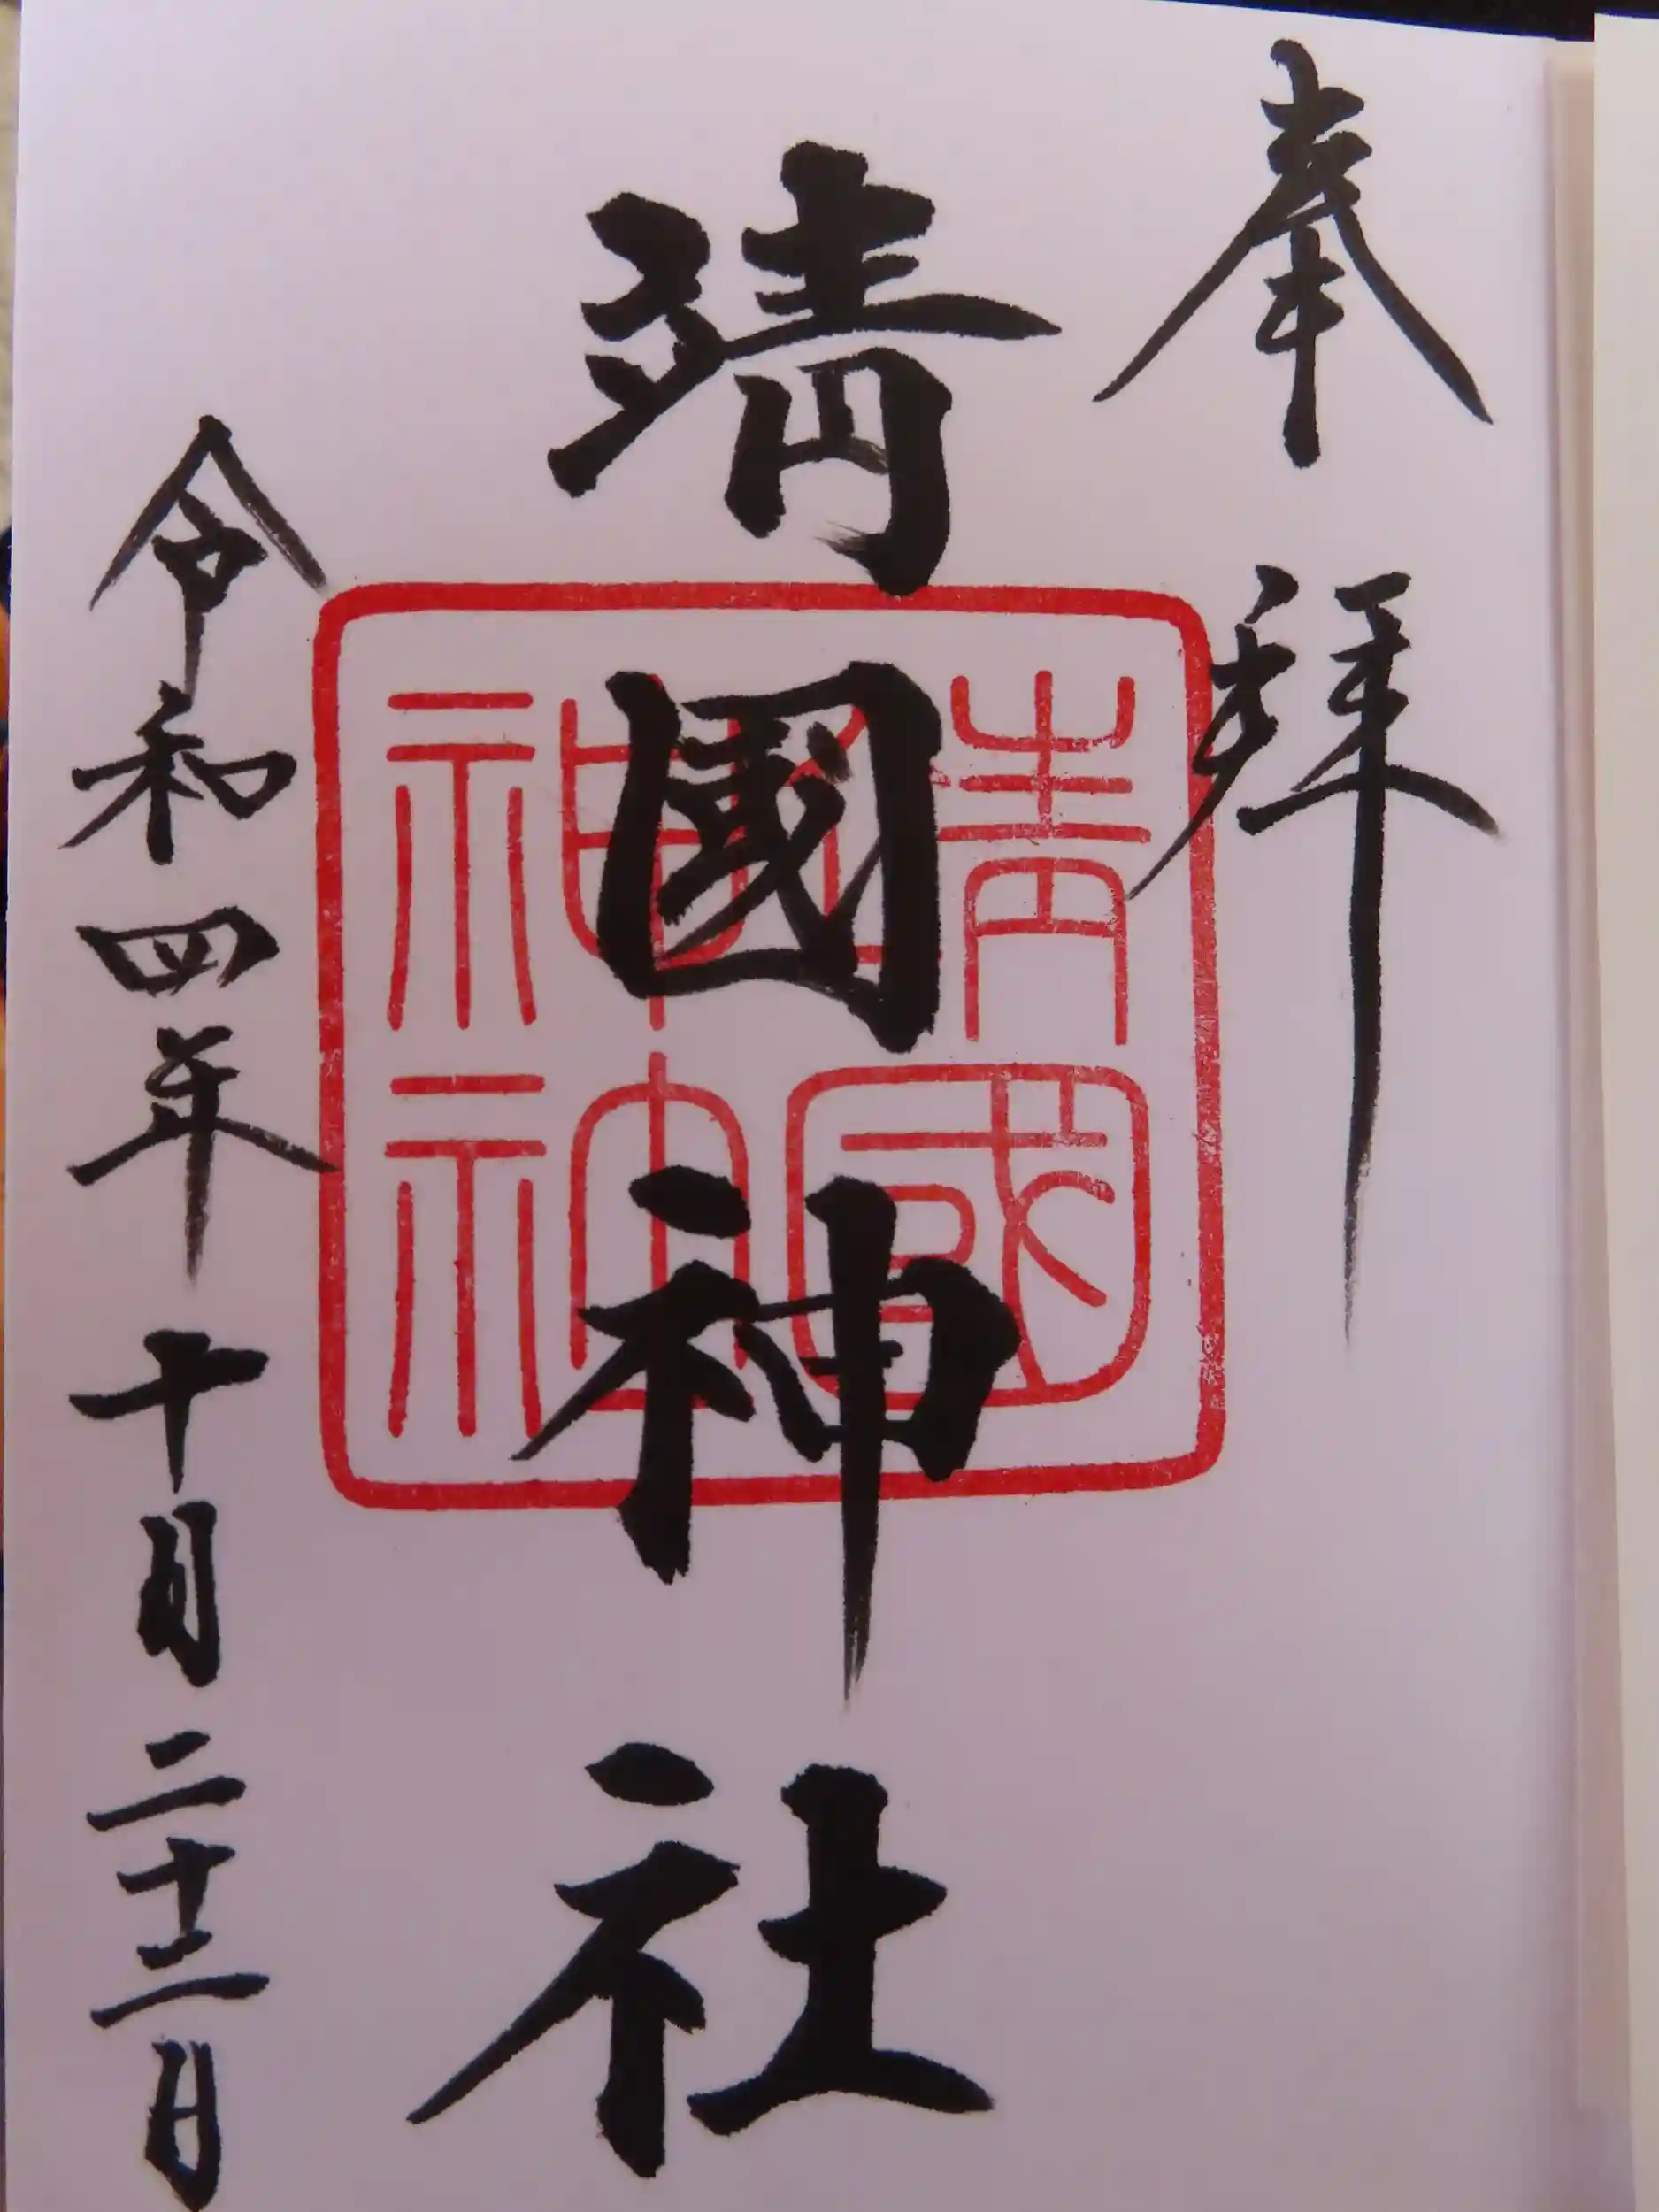 奉拝
靖國神社
靖國神社
令和四年十月二十三日